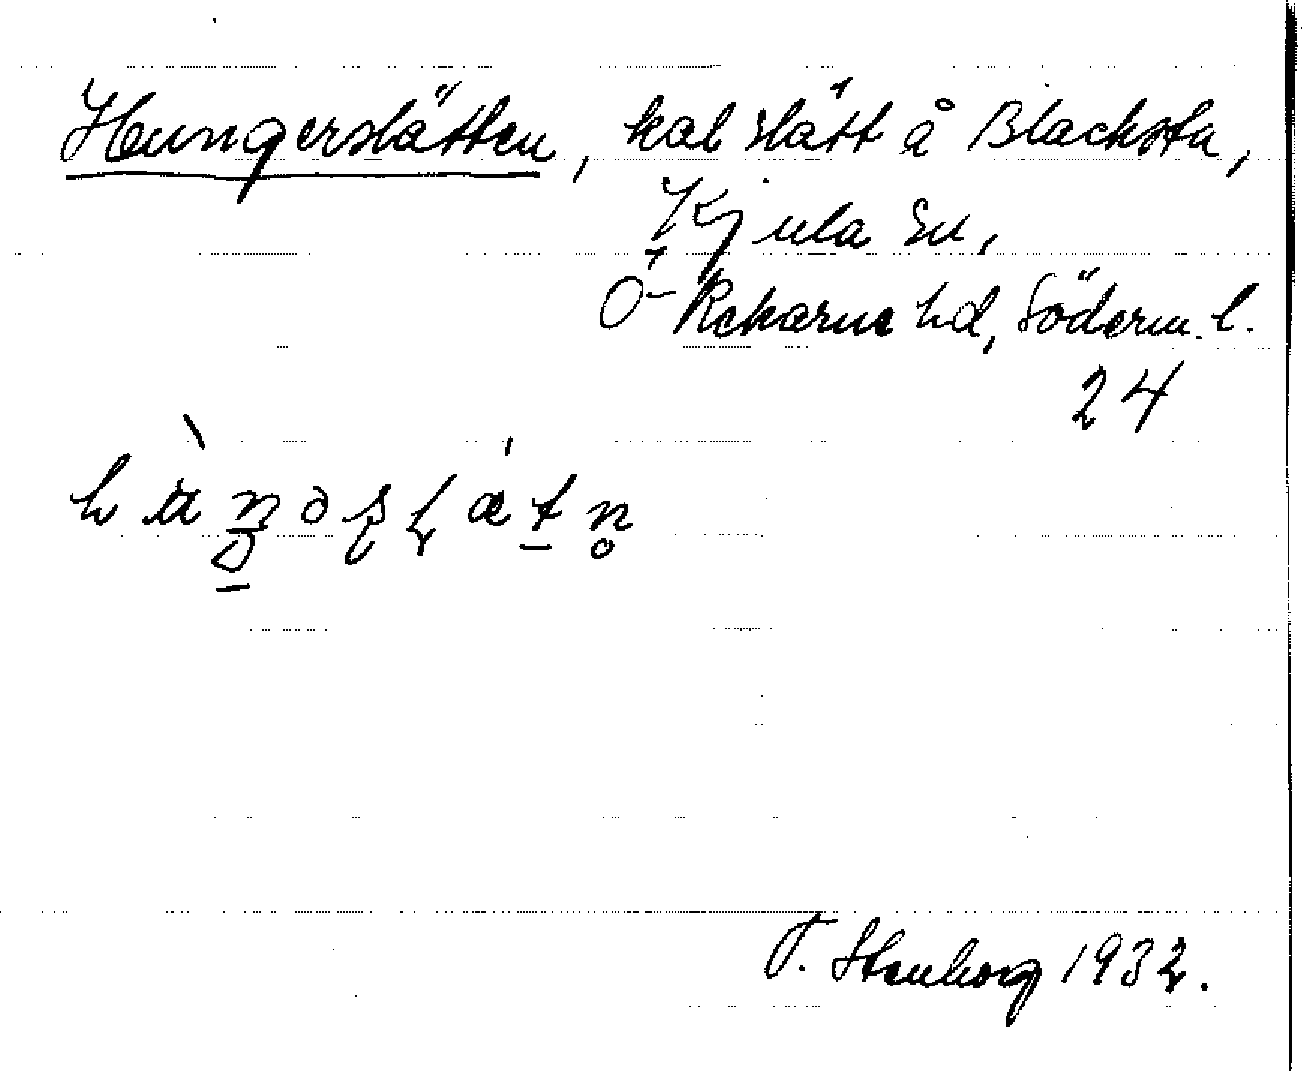 Hungerslätten, kal slätt å Blacksta,
Kjula sn,
Ö-Rekarne hd, Söderm. l.
24
T. Stenborg 1932.